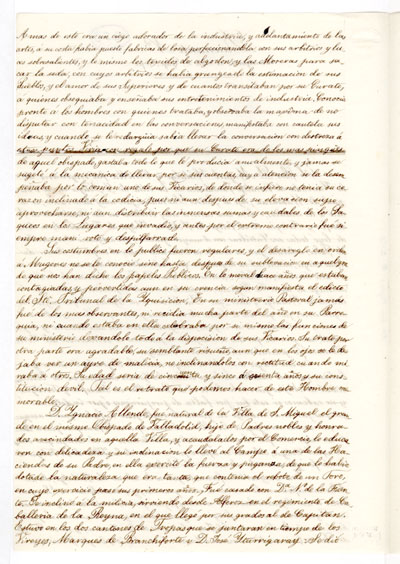 A mas de esto era un ciego adorador de la industria, y adelantamiento de las
artes, a su costa habia puesto fabricas de losa perfeccionandola con sus arbitrios y lu-
ces sobresalientes, y lo mismo los texidos de algodon, y las Moreras para sa-
car la seda, con cuyos arbitrios se habia grangeado la estimacion de sus
Pueblos, y el amor de sus Superiores y de cuantos transitaban por su Curato,
a quienes obsequiaba y enseñaba sus entretenimientos de industria. Conocia
pronto a los hombres con quienes trataba, y observaba la maxima de no
disputar con tenacidad en las conversaciones, manifestaba con cautela sus
ideas, y cuando se le
de aquel obispado, gastaba todo lo que le producia anualmente, y jamas se
sugetó a la mecanica de llevar por si sus cuentas, cuya atencion se la desem-
peñaba por lo comun uno de sus Vicarios, de donde se infiere no tenia su co-
razon inclinado a la codicia, pues ni aun despues de su elevacion supo
aprovecharse, ni aun distribuir las inmensas sumas y caudales de los Sa-
queos en los Lugares que invadió, y antes por el contrario contrario fue si-
empre mani roto y despilfarrado.
Sus costumbres en lo publico fueron regulares, y el desarreglo en orden
a Mugeres no se le conoció sino hasta despues de su sublevacion en aquello
de que nos han dicho los papeles Publicos. En lo moral hace años que estaban
contagiadas y pervertidas aun en su creencia segun manifiesta el edicto
del Sto. Tribunal de la Ynquisicion. En su ministerio Pastoral jamas
fué de los mas observantes, ni residia mucha parte del año en su Parro-
quia, ni cuando estaba en ella celebraba por si mismo las funciones de
su ministerio dexandolo todo a la disposicion de sus Vicarios. Su trato por
otra parte era agradable, su semblante risueño, aunque en los ojos se le de-
jaba ver un ayre de malicia, no inclinandolos con rectitud cuando mi-
raba a otro. Su edad seria de cincuenta, y cinco a sesenta años, y su cons-
titucion debil. Tal es el retrato que podemos hacer de este Hombre me-
morable.
D. Ygnacio Allende, fue natural de la Villa de S. Miguel el gran-
de en el mismo Obispado de Valladolid, hijo de Padres nobles y honra-
dos avecindados en aquella Villa, y acaudalados por el Comercio, lo educa-
ron con delicadeza y su inclinacion lo llevó al Campo á una de las Ha-
ciendas de su Padre, en ella exercitó la fuerza y pujanza, de que le habia
dotado la naturaleza, que era tanta que contenia el rebote de un Toro,
en cuyo exercicio pasó sus primeros años. Fué casado con Da. N. de la Fu-
te. Se inclinó a la milicia, sirviendo desde Alferez en el regimiento de Ca-
balleria de la Reyna, en el que llegó por sus grados al de Capitan.
Estuvo en los dos cantones de Tropas que se juntaron en tiempo de los
Vireyes, Marques de Branciforte y D. José Yturrigaray. Pedió